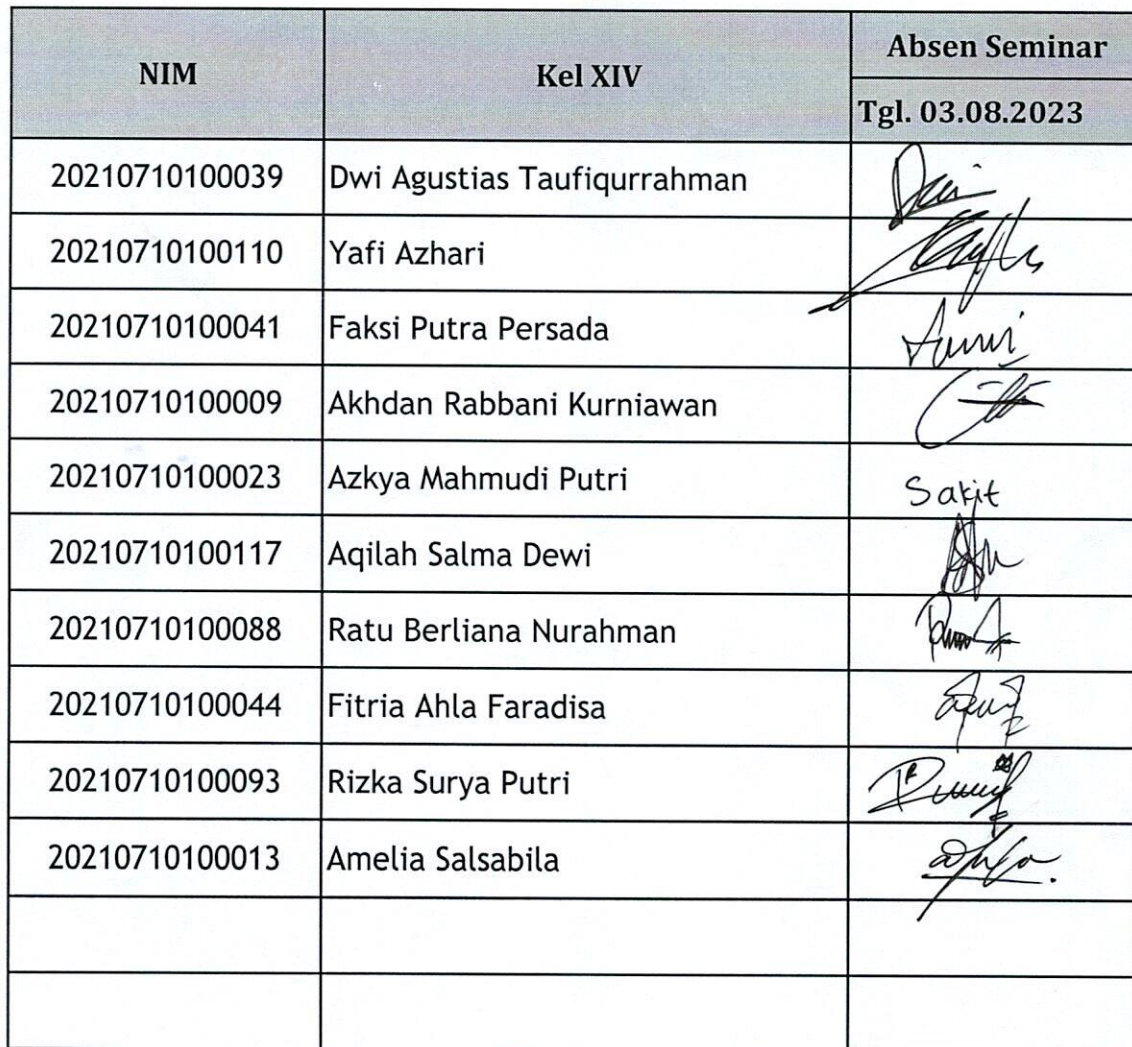 NIM Kel XIV Absen Seminar
Tgl. 03.08.2023
20210710100039 Dwi Agustias Taufiqurrahman
20210710100110 Yafi Azhari
20210710100041 Faksi Putra Persada
20210710100009 Akhdan Rabbani Kurniawan
20210710100023 Azkya Mahmudi Putri Sakit
20210710100117 Aqilah Salma Dewi
20210710100088 Ratu Berliana Nurahman
20210710100044 Fitria Ahla Faradisa
20210710100093 Rizka Surya Putri
20210710100013 Amelia Salsabila